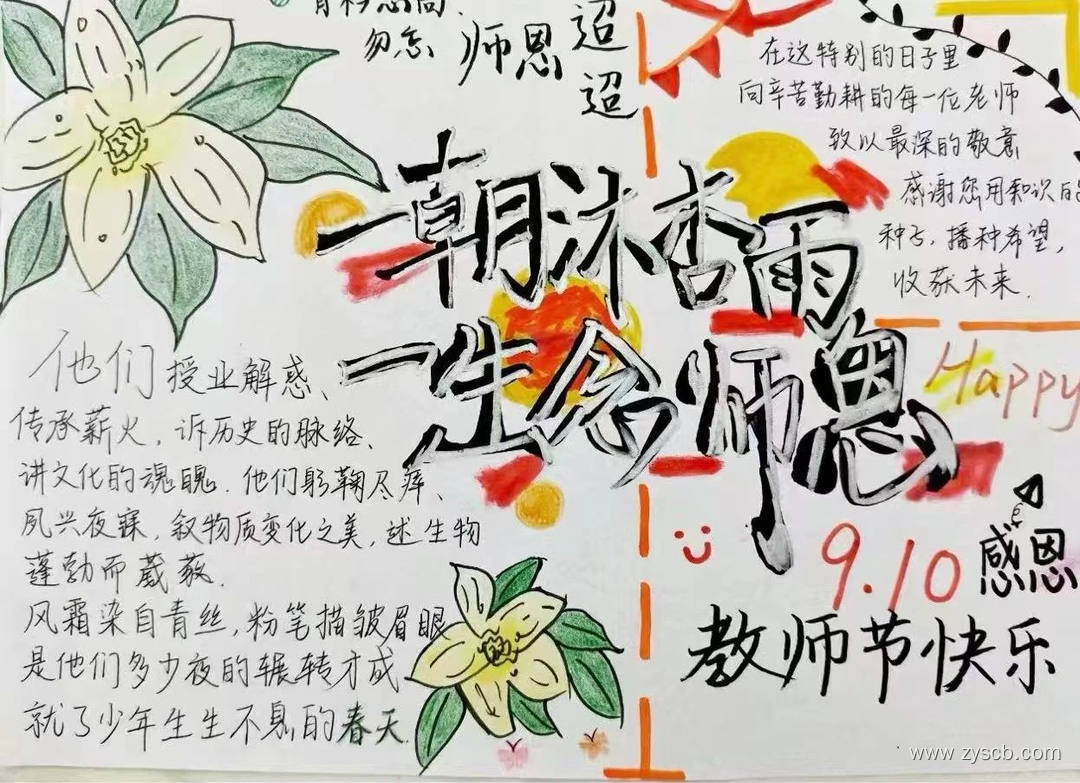 勿忘 师恩 迢
迢
一朝沐杏雨
一生念师恩
在这特别的日子里
向辛苦勤耕的每一位老师
致以最深的敬意
感谢您用知识的
种子，播种希望，
收获未来.
Happy
9.10
感恩
教师节快乐
他们授业解惑、
传承薪火，诉历史的脉络、
讲文化的魂魄.他们躬鞠尽瘁、
夙兴夜寐，叙物质变化之美，述生物
蓬勃而葳蕤.
风霜染白青丝，粉笔描皱眉眼
是他们多少夜的辗转才成
就了少年生生不息的春天.
www.zyscb.com